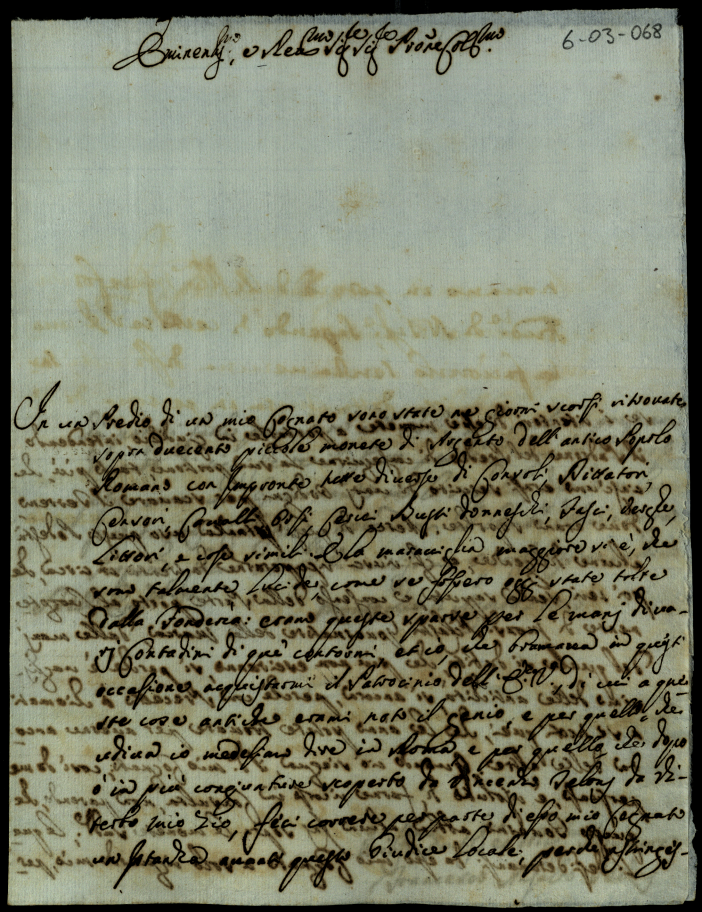 6-03-068
Eminent.mo, e Rev.mo Sig.re Sig.re Prone Col.mo
In un Predio di un mio Cognato sono state ne giorni scorsi ritrovate
sopra duecento piccole monete di Argento dell'antico Popolo
Romano con Impronte tutte diverse di Consoli, Dittatori,
Censori, Cavalli, Busti donneschi, Fasci,
Littori, e cose simili. E la maraviglia maggiore vi è, che
sono talmente lucide, come se fossero oggi state tolte
dalla Fonderia: erano queste sparse per le manj di va-
rj Contadini di que' contorni, et io, che bramava in questi
occasione acquistarmi il Patrocinio dell' E. V., di cui a que-
ste cose antiche erami noto il genio, e per quello, che
udiva io medesimo dire in Roma e per quello che dopo
ò in più congiunture scoperto da Vincenzo da Vi-
terbo mio Zio, feci correre per parte di esso mio Cognato
un Istanza avanti questo Giudice Locale, perche